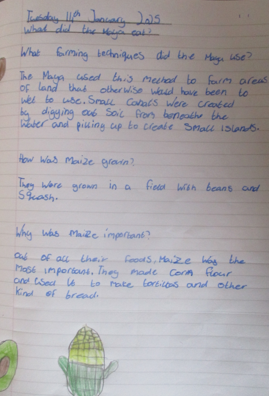 Tuesday 14th January 2025
What did the Maya eat?
What farming techniques did the Maya use?
The Maya used this method to farm areas
of land that otherwise would have been to
wet to use. Small Canals were created
by digging out Soil from beneath the
water and pilling up to create Small islands.
How was Maize grown?
They were grown in a field with beans and
Squash.
Why was Maize important?
Out of all their foods, Maize was the
most important. They made corn flour
and used it to make tortillas and other
kind of bread.